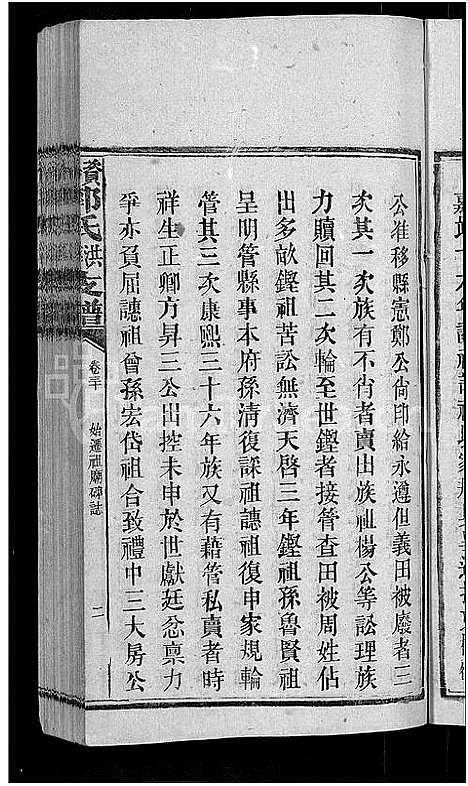 公准移縣憲鄭公尚印給永遵但義田被廢者三
次其一次族有不肖者賣出族祖楊公等訟理族
力贖回其二次輪至世鏗者接管查田被周姓佔
出多畝鏗祖苦訟無濟天啓三年鏗祖孫魯賢祖
呈明管縣事本府孫清復諃祖譓祖復申家規輪
管其三次康熙三十六年族又有藉管私賣者時
祥生正卿方昇三公出控未申於世獻廷忿稟力
爭亦負屈譓祖曾孫宏岱祖合致禮中三大房公
郭氏洪支譜
卷三十
始遷祖廟碑誌
二